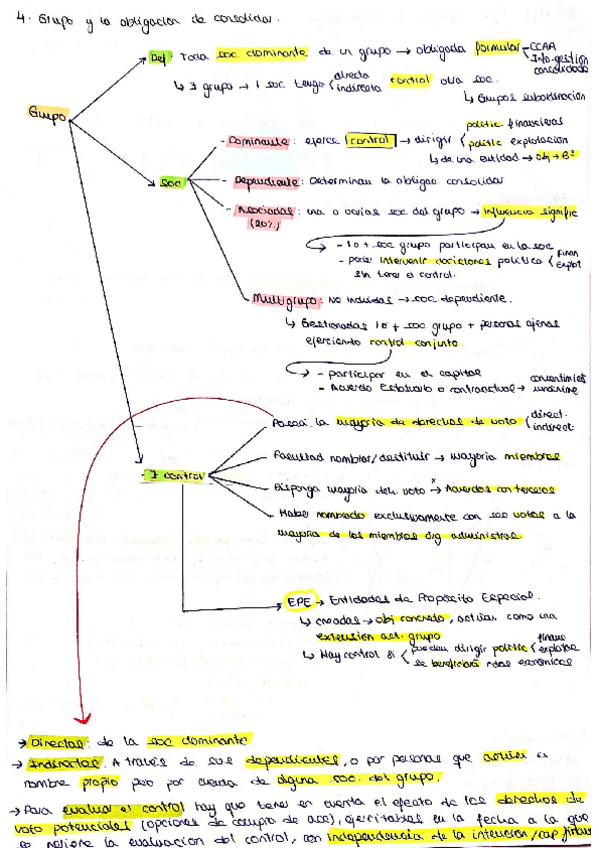 4. Grupo y la obligación de consolidar.
Grupo
Def: Toda soc dominante de un grupo → obligada formular CCAA
Info. gestión
consolidado
↳ ∃ grupo → 1 soc tenga directa
indirecta control otra soc.
↳ Grupos subordinación
soc
- Dominante: ejerce control → dirigir polític. financieras
polític explotación
↳ de una entidad → obj + Bº
- Dependiente: Determinan la obligac consolidar
- Asociadas: una o varias soc del grupo → influencia signific
(20%)
→ - 1 o + soc grupo participan en la soc
- poder intervenir decisiones política finan
explot
sin tener el control.
- Multigrupo: No incluidas → soc dependiente.
↳ Gestionadas 1 o + soc grupo + personas ajenas
ejerciendo control conjunto.
→ - participar en el capital
- Acuerdo Estatutario o contractual → consentimiento
unánime
- ∃ control
Posea la mayoría de derechos de voto direct.
indirect.
Facultad nombrar/destituir → mayoría miembros
Disponga mayoría dch. voto → Acuerdos con terceros
Haber nombrado exclusivamente con sus votos a la
mayoría de los miembros órg administras
EPE → Entidades de Propósito Especial.
↳ creadas → obj concreto, actúan como una
extensión act. grupo
↳ Hay control si pueden dirigir polític financ
explotac
se beneficiará ntes económicas
→ Directos: de la soc dominante
→ Indirectos: A través de sus dependientes, o por personas que actúen en
nombre propio pero por cuenta de alguna soc. del grupo.
→ Para evaluar el control hay que tener en cuenta el efecto de los derechos de
voto potenciales (opciones de compra de acc), ejercitables en la fecha a la que
se refiere la evaluación del control, con independencia de la intención/cap